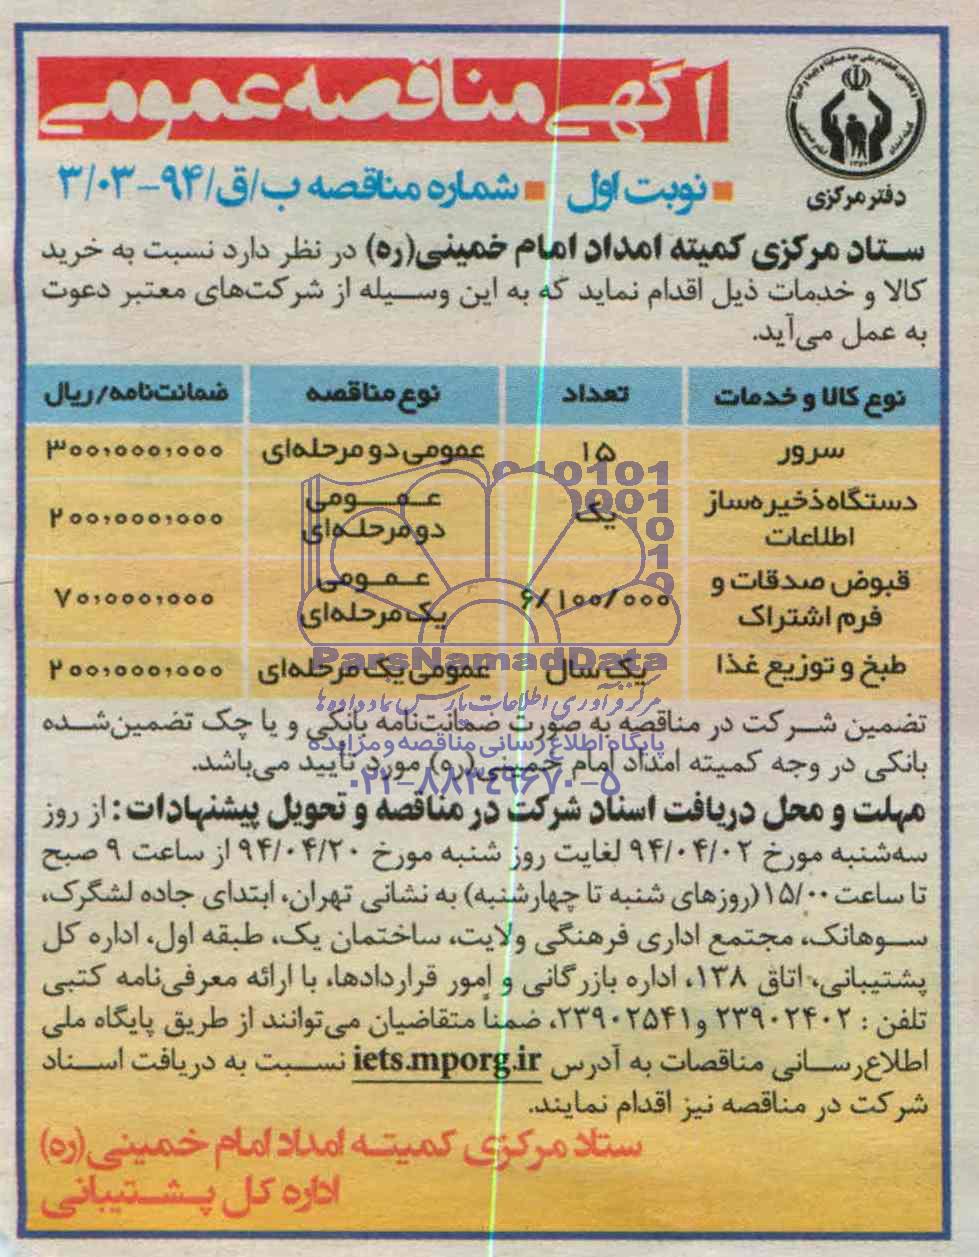 آگهی مناقصه عمومی
دفتر مرکزی
■ نوبت اول ■ شماره مناقصه ب/ق/۹۴-۳/۰۳
ستاد مرکزی کمیته امداد امام خمینی(ره) در نظر دارد نسبت به خرید
کالا و خدمات ذیل اقدام نماید که به این وسیله از شرکت‌های معتبر دعوت
به عمل می‌آید.
نوع کالا و خدمات تعداد نوع مناقصه ضمانت‌نامه/ریال
سرور ۱۵ عمومی دو مرحله‌ای ۳۰۰,۰۰۰,۰۰۰
دستگاه ذخیره‌ساز اطلاعات یک عمومی دو مرحله‌ای ۲۰۰,۰۰۰,۰۰۰
قبوض صدقات و فرم اشتراک ۶/۱۰۰/۰۰۰ عمومی یک مرحله‌ای ۷۰,۰۰۰,۰۰۰
طبخ و توزیع غذا یک سال عمومی یک مرحله‌ای ۲۰۰,۰۰۰,۰۰۰
ParsNamadData
مرکز فرآوری اطلاعات پارس نماد داده‌ها
پایگاه اطلاع رسانی مناقصه و مزایده
۰۲۱-۸۸۳۴۹۶۷۰-۵
تضمین شرکت در مناقصه به صورت ضمانت‌نامه بانکی و یا چک تضمین‌شده
بانکی در وجه کمیته امداد امام خمینی(ره) مورد تأیید می‌باشد.
مهلت و محل دریافت اسناد شرکت در مناقصه و تحویل پیشنهادات: از روز
سه‌شنبه مورخ ۹۴/۰۴/۰۲ لغایت روز شنبه مورخ ۹۴/۰۴/۲۰ از ساعت ۹ صبح
تا ساعت ۱۵/۰۰ (روزهای شنبه تا چهارشنبه) به نشانی تهران، ابتدای جاده لشگرک،
سوهانک، مجتمع اداری فرهنگی ولایت، ساختمان یک، طبقه اول، اداره کل
پشتیبانی، اتاق ۱۳۸، اداره بازرگانی و امور قراردادها، با ارائه معرفی‌نامه کتبی
تلفن : ۲۳۹۰۲۴۰۲ و ۲۳۹۰۲۵۴۱، ضمناً متقاضیان می‌توانند از طریق پایگاه ملی
اطلاع‌رسانی مناقصات به آدرس iets.mporg.ir نسبت به دریافت اسناد
شرکت در مناقصه نیز اقدام نمایند.
ستاد مرکزی کمیته امداد امام خمینی(ره)
اداره کل پشتیبانی